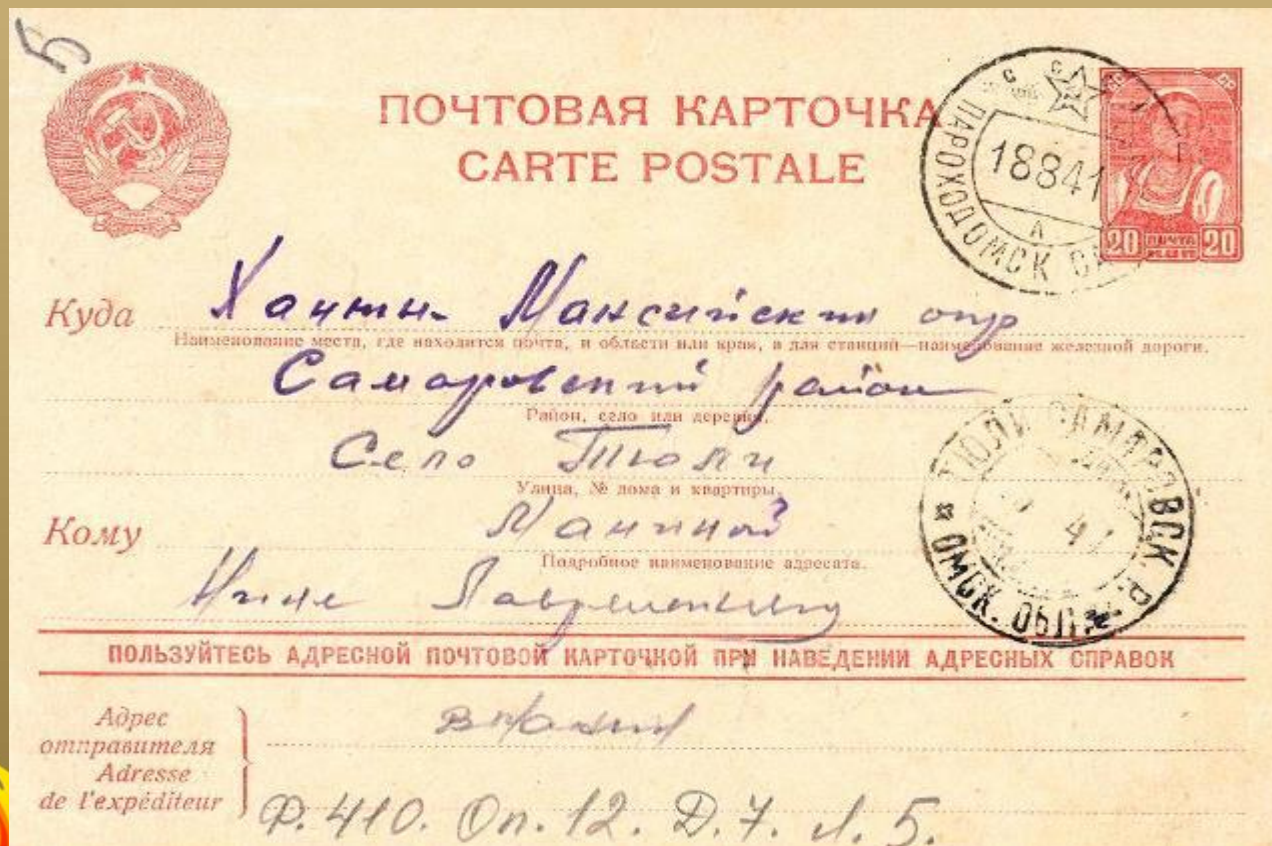 5
ПОЧТОВАЯ КАРТОЧКА
CARTE POSTALE
ПАРОХОД ОМСК
18 8 41
А
20 ПОЧТА 20
КОП
Куда Ханты-Мансийский окр
Наименование места, где находится почта, и области или края, а для станций—наименование железной дороги.
Самаровский район
Район, село или деревня.
Село Тюли
Улица, № дома и квартиры.
Кому Маниной
Подробное наименование адресата.
Нине
ТЮЛИ САМАРОВСК. Р.
41
ОМСК. ОБЛ.
ПОЛЬЗУЙТЕСЬ АДРЕСНОЙ ПОЧТОВОЙ КАРТОЧКОЙ ПРИ НАВЕДЕНИИ АДРЕСНЫХ СПРАВОК
Адрес
отправителя
Adresse
de l'expéditeur
Ф. 410. Оп. 12. Д. 7. Л. 5.